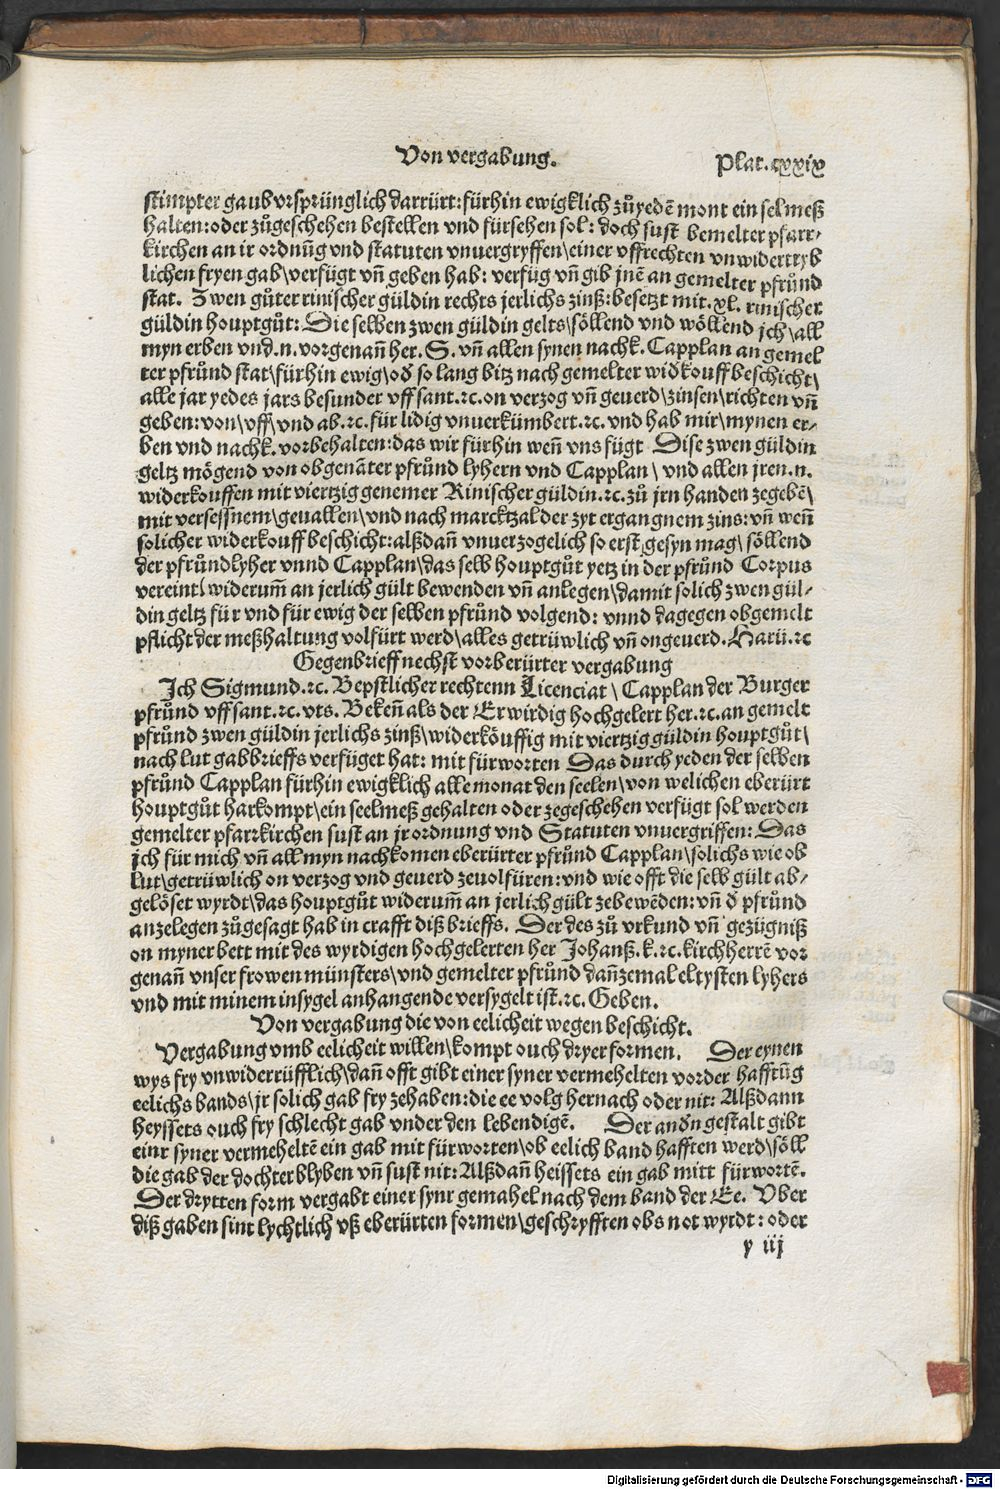 Von vergabung.
Plat. cxxix
stimpter gaub vrsprünglich darrürt: fürhin ewigklich zů yedē mont ein selmeß
halten: oder zůgeschehen bestellen vnd fürsehen sol: doch sust bemelter pfarr⸗
kirchen an ir ordnūg vnd statuten vnuergryffen/ einer vffrechten vnwidertryb
lichen fryen gab\ verfügt vn̄ geben hab: verfüg vn̄ gib jnē an gemelter pfrůnd
stat. Zwen gůter rinischer güldin rechts jerlichs zinß: besetzt mit .xl. rinischer
güldin houptgůt: Die selben zwen güldin gelts\ söllend vnd wöllend jch\ all
myn erben vnd .n. vorgenan̄ her. S. vn̄ allen synen nachk. Capplan an gemel
ter pfrůnd stat\ fürhin ewig\ od̄ so lang bitz nach gemelter wid̄kouff beschicht\
alle jar yedes jars besunder vff sant .ꝛc. on verzog vn̄ geuerd\ zinsen\ richten vn̄
geben: von\ vff\ vnd ab .ꝛc. für lidig vnuerkümbert .ꝛc. vnd hab mir\ mynen er⸗
ben vnd nachk. vorbehalten: das wir fürhin wen̄ vns fügt Dise zwen güldin
geltz mögend von obgenāter pfrůnd lyhern vnd Capplan\ vnd allen jren .n.
widerkouffen mit viertzig genemer Rinischer güldin .ꝛc. zů jrn handen zegebē\
mit versessnem\ geuallen\ vnd nach marcktzal der zyt ergangnem zins: vn̄ wen̄
solicher widerkouff beschicht: alßdan̄ vnuerzogelich so erst gesyn mag\ söllend
der pfrůndlyher vnnd Capplan\ das selb houptgůt yetz in der pfrůnd Corpus
vereint\ widerum̄ an jerlich gült bewenden vn̄ anlegen\ damit solich zwen gül⸗
din geltz für vnd für ewig der selben pfrůnd volgend: vnnd dagegen obgemelt
pflicht der meßhaltung volfürt werd\ alles getrüwlich vn̄ ongeuerd. Harü .ꝛc
Gegenbrieff nechst vorberürter vergabung
Ich Sigmund .ꝛc. Bepstlicher rechtenn Licenciat\ Capplan der Burger
pfrůnd vff sant .ꝛc. vts. Beken̄ als der Erwirdig hochgelert her .ꝛc. an gemelt
pfrůnd zwen güldin jerlichs zinß\ widerköuffig mit viertzig güldin houptgůt\
nach lut gabbrieffs verfüget hat: mit fürworten Das durch yeden der selben
pfrůnd Capplan fürhin ewigklich alle monat den seelen\ von welichen eberürt
houptgůt harkompt\ ein seelmeß gehalten oder zegeschehen verfügt sol werden
gemelter pfarrkirchen sust an jr ordnung vnd Statuten vnuergriffen: Das
ich für mich vn̄ all myn nachkomen eberürter pfrůnd Capplan\ solichs wie ob
lut\ getrüwlich on verzog vnd geuerd zeuolfüren: vnd wie offt die selb gült ab⸗
gelöset wyrdt\ das houptgůt widerum̄ an jerlich gült zebewēden: vn̄ d̄ pfrůnd
anzelegen zůgesagt hab in crafft diß brieffs. Der des zů vrkund vn̄ gezügniß
on myner bett mit des wyrdigen hochgelerten her Johanß. k. ꝛc. kirchherrē vor
genan̄ vnser frowen münsters\ vnd gemelter pfrůnd dan̄zemal eltysten lyhers
vnd mit minem insygel anhangende versygelt ist .ꝛc. Geben.
Von vergabung die von eelicheit wegen beschicht.
Vergabung vmb eelicheit willen\ kompt ouch dryer formen. Der eynen
wys fry vnwiderrüfflich\ dan̄ offt gibt einer syner vermehelten vor der hafftūg
eelichs bands\ jr solich gab fry zehaben: die ee volg hernach oder nit: Alßdann
heyssets ouch fry schlecht gab vnder den lebendigē. Der and̄n gestalt gibt
einr syner vermeheltē ein gab mit fürworten\ ob eelich band hafften werd\ söll
die gab der dochter blyben vn̄ sust nit: Alßdan̄ heissets ein gab mitt fürwortē.
Der drytten form vergabt einer synr gemahel nach dem band der Ee. Vber
diß gaben sint lychtlich vß eberürten formen\ geschryfften obs not wyrdt: oder
y iij
Digitalisierung gefördert durch die Deutsche Forschungsgemeinschaft - DFG